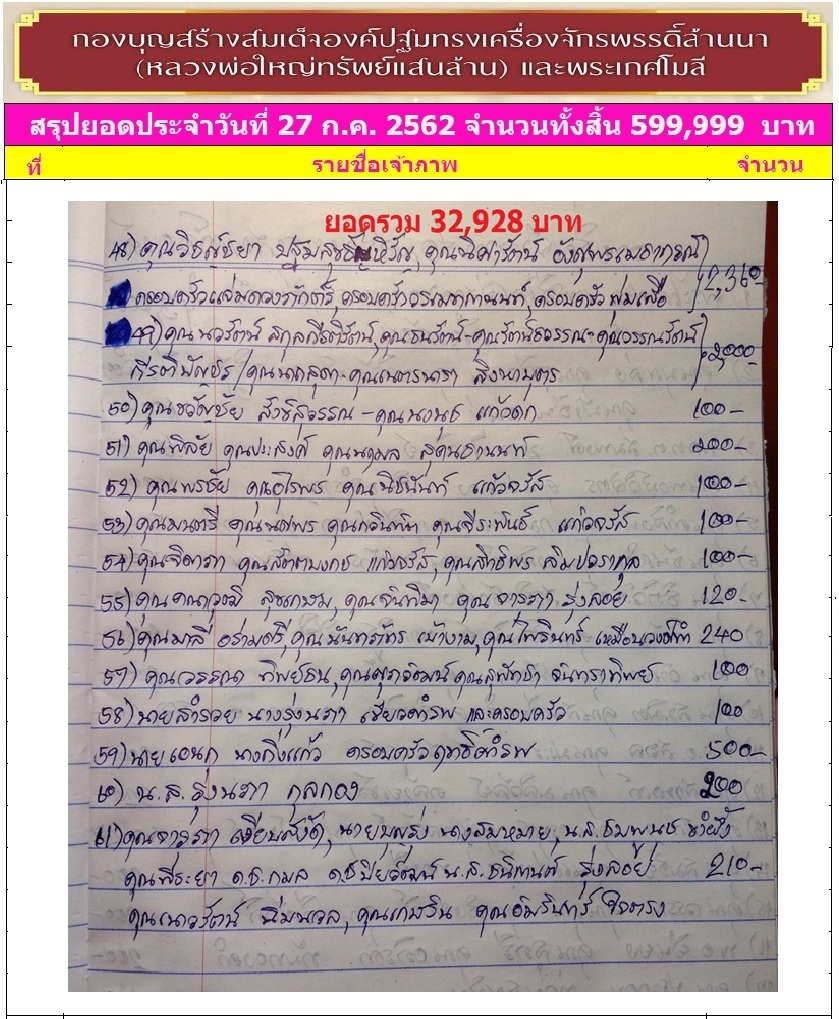 กองบุญสร้างสมเด็จองค์ปฐมทรงเครื่องจักรพรรดิ์ล้านนา
(หลวงพ่อใหญ่ทรัพย์แสนล้าน) และพระเกศโมลี
สรุปยอดประจำวันที่ 27 ก.ค. 2562 จำนวนทั้งสิ้น 599,999 บาท
ที่ รายชื่อเจ้าภาพ จำนวน
ยอดรวม 32,928 บาท
48) คุณวิชญ์ชยา คุณนิศารัตน์ อังศุพรเมธาภรณ์
ครอบครัวแจ่มดวงภักดี, ครอบครัว ครอบครัว พุ่มเฟือ 2,360-
49) คุณนวรัตน์ สกุลกีรติรัตน์, คุณธนรัตน์-คุณรัตน์ธวรรณ-คุณวรรณรัตน์
คุณนาถสุดา-คุณเนตรนภา สิงหาบุตร 2,000-
50) คุณขวัญชัย สังขสุวรรณ-คุณนงนุช แก้วดก 100-
51) คุณพิสัย คุณประสงค์ คุณนฤมล สุคนธานนท์ 200-
52) คุณพรชัย คุณอุไรพร คุณนิชนันท์ แก้วจรัส 100-
53) คุณมนตรี คุณนศพร คุณกวินท์นา คุณจีระพันธ์ แก้วจรัส 100-
54) คุณจิดาภา แก้วจรัส, คุณสิทธิพร ลิมปวรากุล 100-
55) คุณคณาวุฒิ สุขเกษม, คุณจันทิมา คุณจารุภา รุ่งลอย 120-
56) คุณมาลี อร่ามศรี, คุณนันทภัทร เบ้างาม, คุณไพรินทร์ เหมือนวงศ์ 240
57) คุณวรรณา ทิพย์ธน, คุณศุภวัฒน์ คุณสุพัตชา จันทราทิพย์ 100
58) นายสำรวย นางรุ่งนภา เขียวคำรพ และครอบครัว 100
59) นายเอนก นางกิ่งแก้ว ครอบครัวฤทธิ์คำรพ 500-
60) น.ส.รุ่งนภา กุลกอง 200
61) คุณจารุภา เงียบสงัด, นายบุญรุ่ง นางสมหมาย, น.ส.ชมพูนุช ขำฝั้ว
คุณพีระยา ด.ช.กมล ด.ช.ปิยวัฒน์ น.ส.ธนิกานต์ รุ่งลอย 210-
คุณเนาวรัตน์ นิ่มนวล, คุณเกษริน คุณอัมรินทร์ ใจตรง